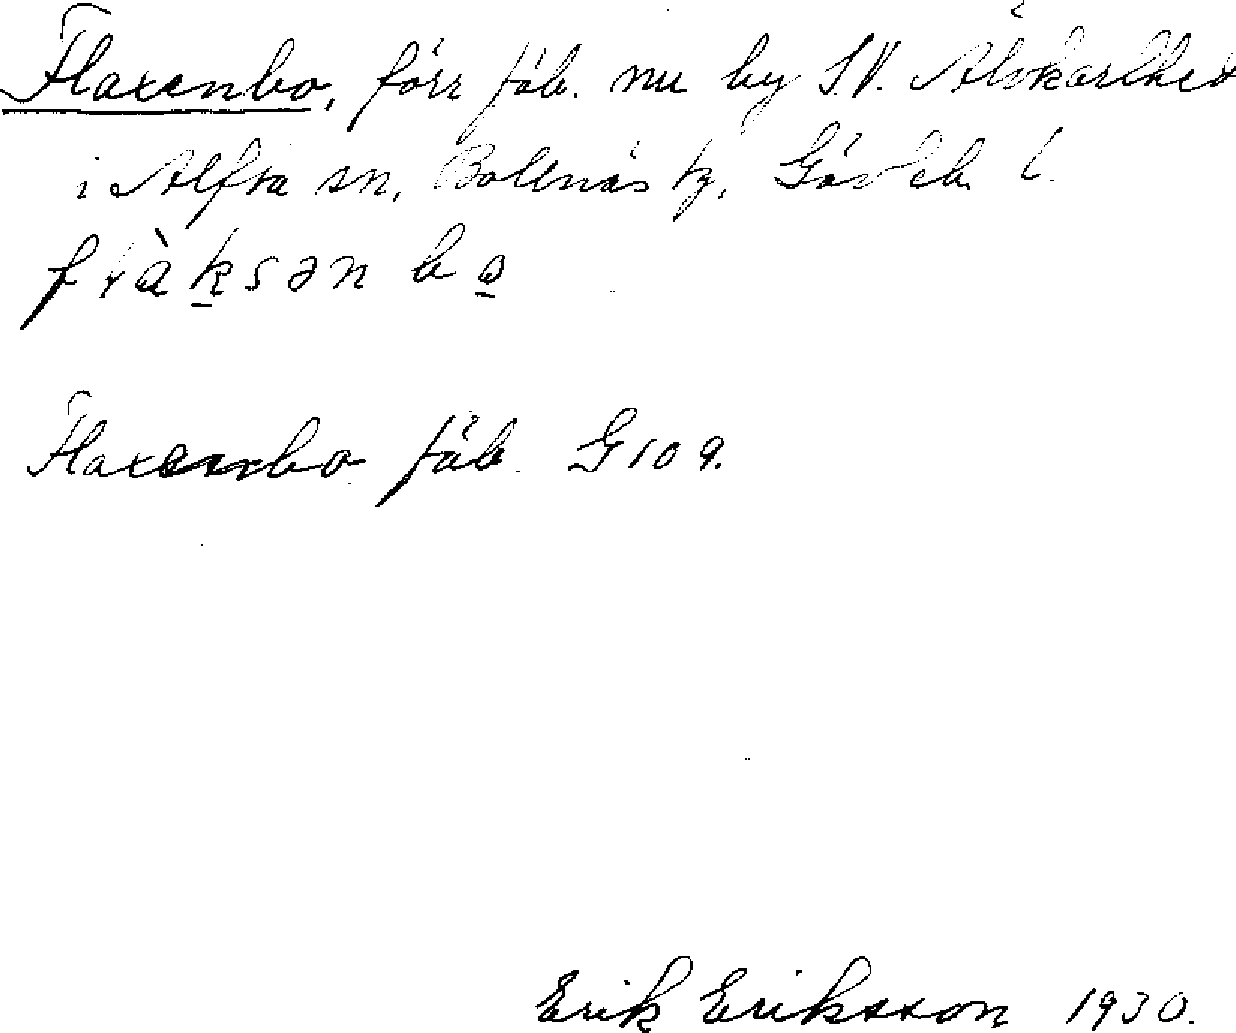 Flaxenbo, förr fäb. nu by S.V. Älvkarlhed
i Alfta sn, Bollnäs tg, Gävleb l.
flàksən bo
Flaxenbo fäb. G 109.
Erik Eriksson 1930.